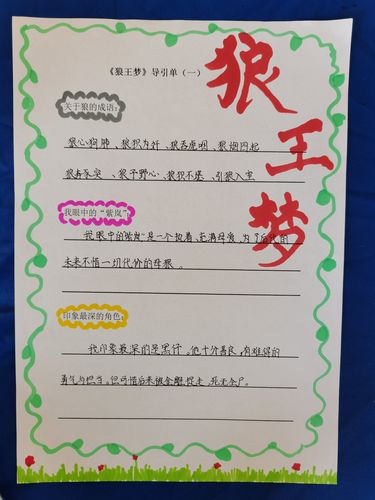 《狼王梦》导引单（一）
狼王梦
关于狼的成语：
狼心狗肺、狼狈为奸、狼吞虎咽、狼烟四起
狼奔豕突、狼子野心、狼狈不堪、引狼入室
我眼中的“紫岚”
我眼中的“紫岚”是一个执着、充满母爱、为了后代的
未来不惜一切代价的母狼。
印象最深的角色：
我印象最深的是黑仔。他十分勇良，有难得的
勇气与担当。但可惜后来被金雕捉走，死无全尸。